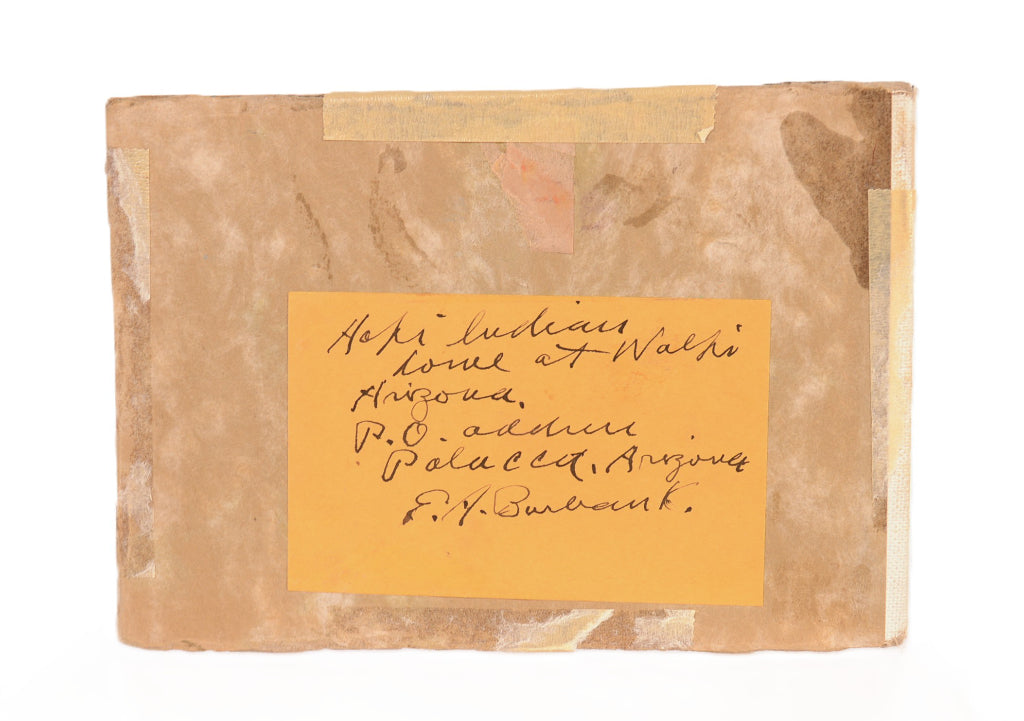 Hopi Indian
home at Walpi
Arizona.
P.O. address
Polacca, Arizona
E.A. Burbank.